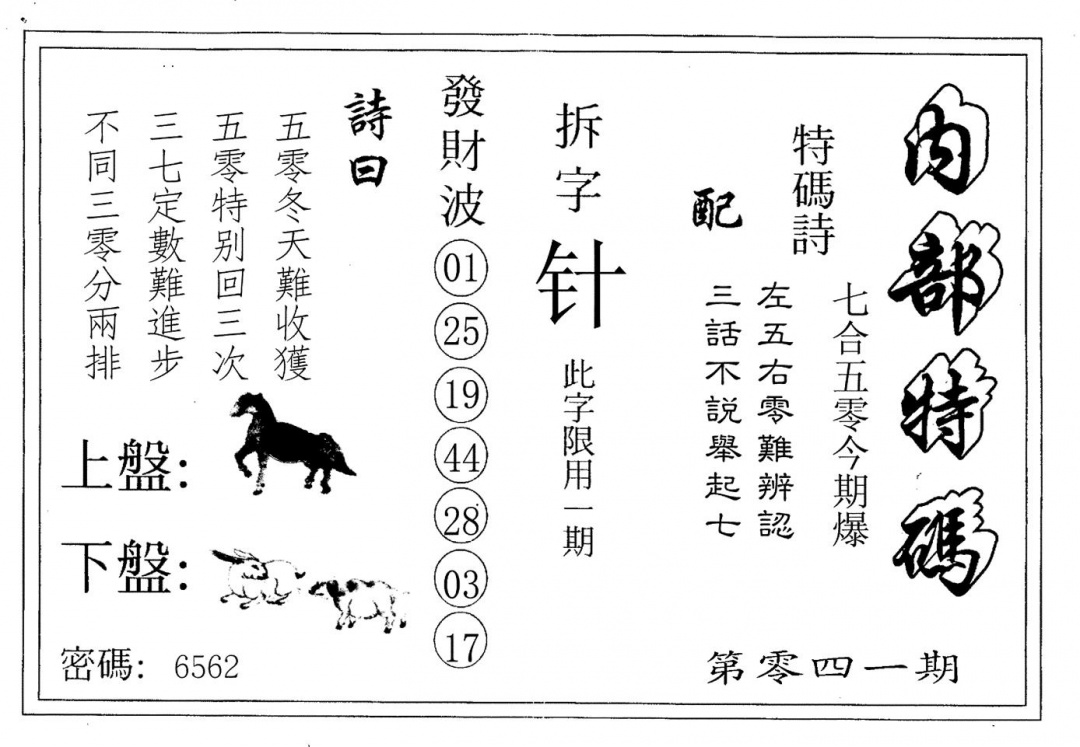 内部特碼
特碼詩
七合五零今期爆
配
左五右零難辨認
三話不説舉起七
第零四一期
拆字
针
此字限用一期
發財波
01
25
19
44
28
03
17
詩曰
五零冬天難收獲
五零特别回三次
三七定數難進步
不同三零分兩排
上盤:
下盤:
密碼: 6562